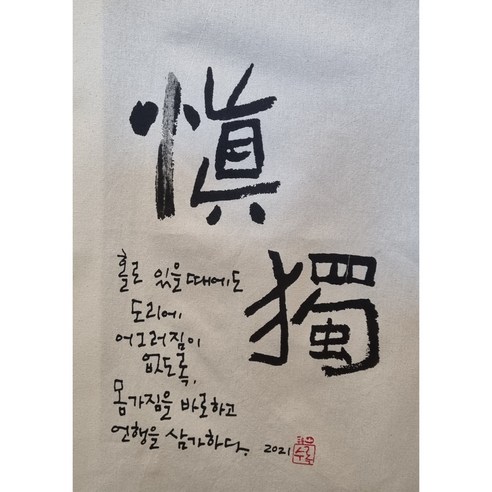 愼
獨
홀로 있을때에도
도리에
어그러짐이
없도록,
몸가짐을 바로하고
언행을 삼가하다. 2021